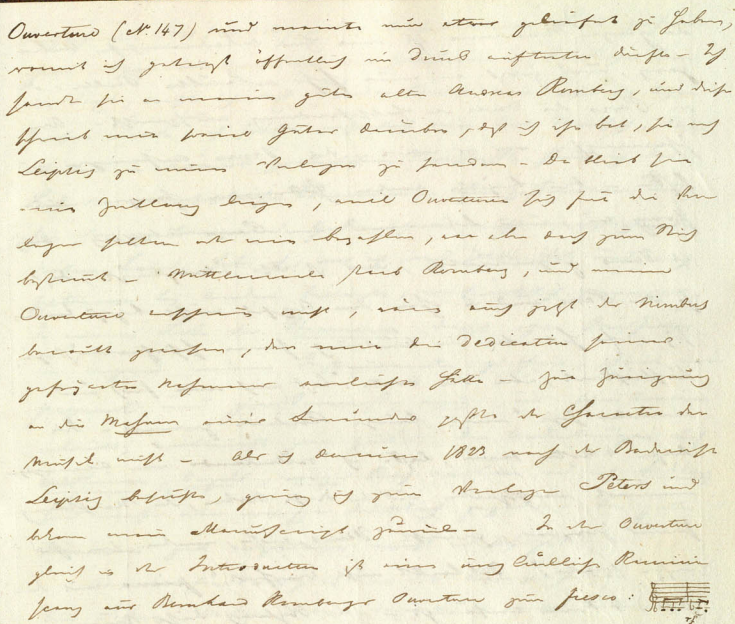 Ouverture (No 147) und meinte nun etwas geliefert zu haben,
womit ich getrost öffentlich im Druck auftreten dürfte – Ich
sandte sie an meinen guten alten Andreas Romberg, und dieser
schrieb mir soviel Gutes darüber, daß ich ihn bat, sie nach
Leipzig zu einem Verleger zu senden – Da blieb sie
eine Zeitlang liegen, weil Ouverturen sich für die Ver
leger selten oder nie bezahlen, war aber doch zum Stich
bestimmt – Mittlerweile starb Romberg, und meine
Ouverture erschien nicht, wäre auch jetzt der Nimbus
beraubt gewesen, den mir die Dedication seines
gefeierten Nahmens verliehen hätte – Zur Zueignung
an die Manen eines Freundes paßte der Character der
Musik nicht – Als ich darum 1823 nach der Badereise
Leipzig besuchte, ging ich zum Verleger Peters und
bekam mein Manuscript zurück – In der Ouverture
gleich in der Introduction ist eine unglückliche Reminis
cenz aus Bernhard Rombergs Ouverture zum